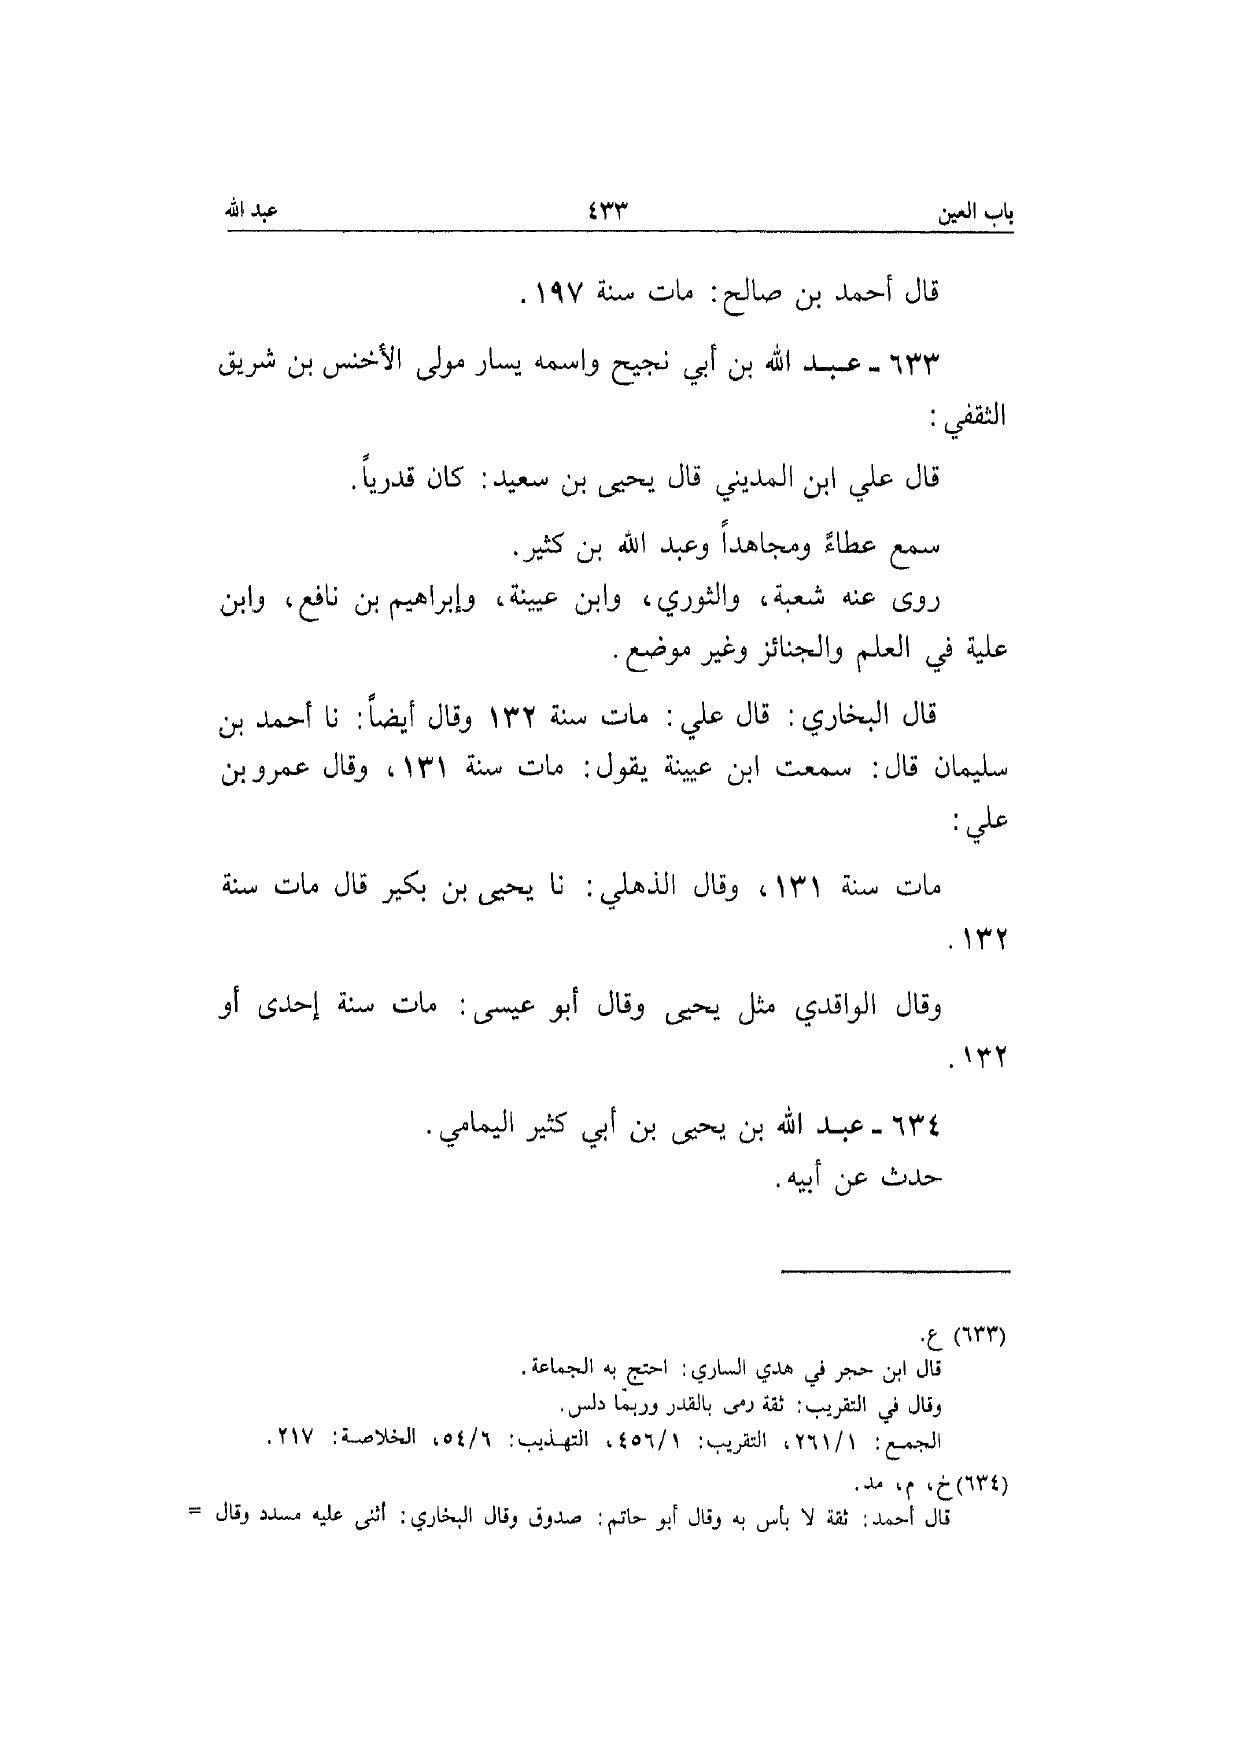 باب العين ٤٣٣ عبد الله
قال أحمد بن صالح: مات سنة ١٩٧.
٦٣٣ ـ عبد الله بن أبي نجيح واسمه يسار مولى الأخنس بن شريق
الثقفي:
قال علي ابن المديني قال يحيى بن سعيد: كان قدرياً.
سمع عطاءً ومجاهداً وعبد الله بن كثير.
روى عنه شعبة، والثوري، وابن عيينة، وإبراهيم بن نافع، وابن
علية في العلم والجنائز وغير موضع.
قال البخاري: قال علي: مات سنة ١٣٢ وقال أيضاً: نا أحمد بن
سليمان قال: سمعت ابن عيينة يقول: مات سنة ١٣١، وقال عمرو بن
علي:
مات سنة ١٣١، وقال الذهلي: نا يحيى بن بكير قال مات سنة
١٣٢.
وقال الواقدي مثل يحيى وقال أبو عيسى: مات سنة إحدى أو
١٣٢.
٦٣٤ ـ عبد الله بن يحيى بن أبي كثير اليمامي.
حدث عن أبيه.
(٦٣٣) ع.
قال ابن حجر في هدي الساري: احتج به الجماعة.
وقال في التقريب: ثقة رمى بالقدر وربمّا دلس.
الجمع: ٢٦١/١، التقريب: ٤٥٦/١، التهذيب: ٥٤/٦، الخلاصة: ٢١٧.
(٦٣٤) خ، م، مد.
قال أحمد: ثقة لا بأس به وقال أبو حاتم: صدوق وقال البخاري: أثنى عليه مسدد وقال =